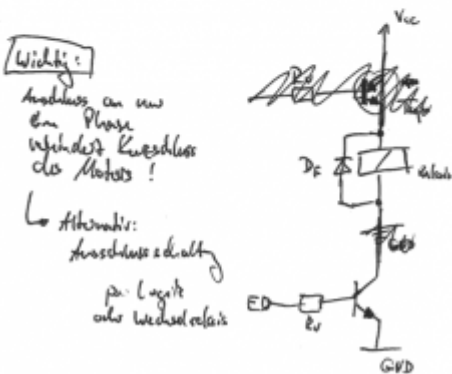 Wichtig:
Anschluss an nur
Phase
verhindert Kurzschluss
des Motors!
Alternativ:
Ausschlussschaltg
per Logik
oder Wechselrelais
Vcc
DF
Relais
ED
Rv
GND